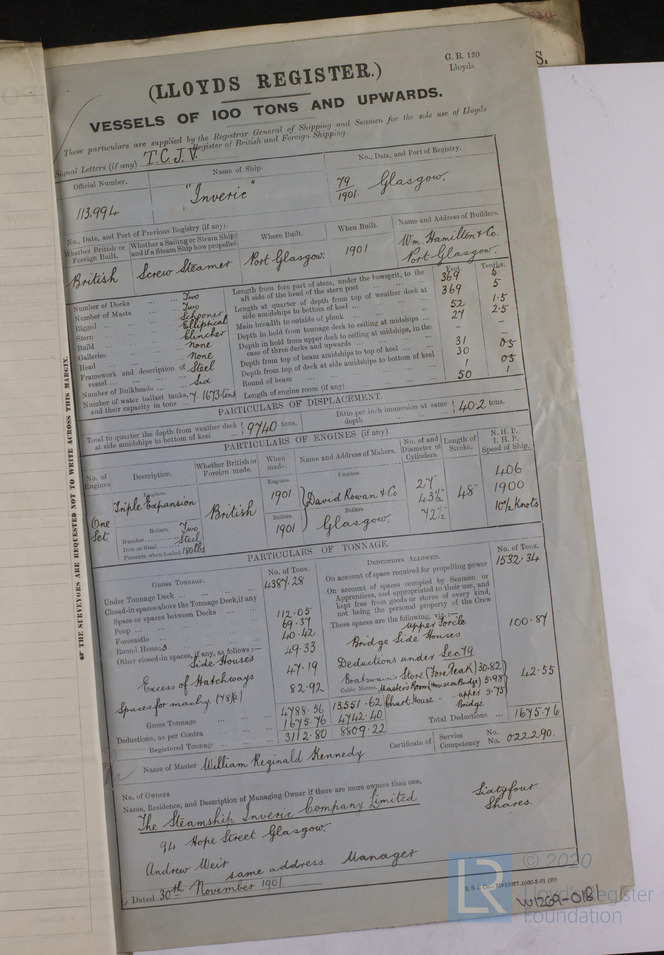 G. R. 130
Lloyds.
(LLOYDS REGISTER.)
VESSELS OF 100 TONS AND UPWARDS.
These particulars are supplied by the Registrar General of Shipping and Seamen for the sole use of Lloyds
Register of British and Foreign Shipping.
Signal Letters (if any) T.C.J.V.
Official Number. Name of Ship. No., Date, and Port of Registry.
113,994 "Inveric" 79/1901 Glasgow.
No., Date, and Port of Previous Registry (if any).
Whether British or Foreign Built. Whether a Sailing or Steam Ship; and if a Steam Ship how propelled. Where Built. When Built. Name and Address of Builders.
British Screw Steamer Port Glasgow. 1901 Wm Hamilton & Co. Port Glasgow.
Feet. Tenths.
Number of Decks ... Two
Number of Masts ... Two
Rigged ... Schooner
Stern ... Elliptical
Build ... Clincher
Galleries ... None
Head ... None
Framework and description of vessel ... Steel
Number of Bulkheads ... Six
Number of water ballast tanks, and their capacity in tons 7. 1673 tons
Length from fore part of stem, under the bowsprit, to the aft side of the head of the stern post 369 5
Length at quarter of depth from top of weather deck at side amidships to bottom of keel 369 5
Main breadth to outside of plank 52 1.5
Depth in hold from tonnage deck to ceiling at midships 27 2.5
Depth in hold from upper deck to ceiling at midships, in the case of three decks and upwards - -
Depth from top of beam amidships to top of keel 31 05
Depth from top of deck at side amidships to bottom of keel 30
Round of beam 1 05
Length of engine room (if any) 50 1
PARTICULARS OF DISPLACEMENT.
Total to quarter the depth from weather deck at side amidships to bottom of keel 9740 tons. Ditto per inch immersion at same depth 40.2 tons.
PARTICULARS OF ENGINES (if any).
No. of Engines. Description. Whether British or Foreign made. When made. Name and Address of Makers. No. of and Diameter of Cylinders. Length of Stroke. N. H. P. I. H. P. Speed of Ship.
One Set. Engines. Triple Expansion British Engines. 1901 Engines. David Rowan & Co 27" 43½" 72½" 48" 406
1900
10½ Knots
Boilers. Number Two Boilers. 1901 Boilers. Glasgow.
Iron or Steel Steel
Pressure when loaded 180 lbs
PARTICULARS OF TONNAGE.
GROSS TONNAGE. No. of Tons.
Under Tonnage Deck ... 4387.28
Closed-in spaces above the Tonnage Deck, if any
Space or spaces between Decks ... 112.05
Poop ... 69.37
Forecastle ... 40.42
Round Houses ... 49.33
Other closed-in spaces, if any, as follows:—
Side Houses 47.19
Excess of Hatchways
Spaces for machy. (78(2)) 82.92
Gross Tonnage 4788.56 13551.62
Deductions, as per Contra 1675.76 4742.40
Registered Tonnage 3112.80 8809.22
DEDUCTIONS ALLOWED. No. of Tons.
On account of space required for propelling power 1532.34
On account of spaces occupied by Seamen or Apprentices, and appropriated to their use, and kept free from goods or stores of every kind, not being the personal property of the Crew
These spaces are the following, viz.:—
Upper Forcle
Bridge Side Houses 100.87
Deductions under Sec 79
Boatswains Store (Fore Peak) 30.82
Master's Room (House on Bridge) 5.98
Chart House - upper Bridge 5.75 42.55
Total Deductions 1675.76
Name of Master William Reginald Kennedy Certificate of Service No. Competency No. 022290.
No. of Owners
Name, Residence, and Description of Managing Owner if there are more owners than one.
The Steamship Inveric Company Limited Sixtyfour Shares.
94 Hope Street Glasgow.
Andrew Weir
same address Manager
Dated 30th November 1901.
OF THE SURVEYORS ARE REQUESTED NOT TO WRITE ACROSS THIS MARGIN.
W1269-018
LR
© 2020
Lloyd's Register
Foundation